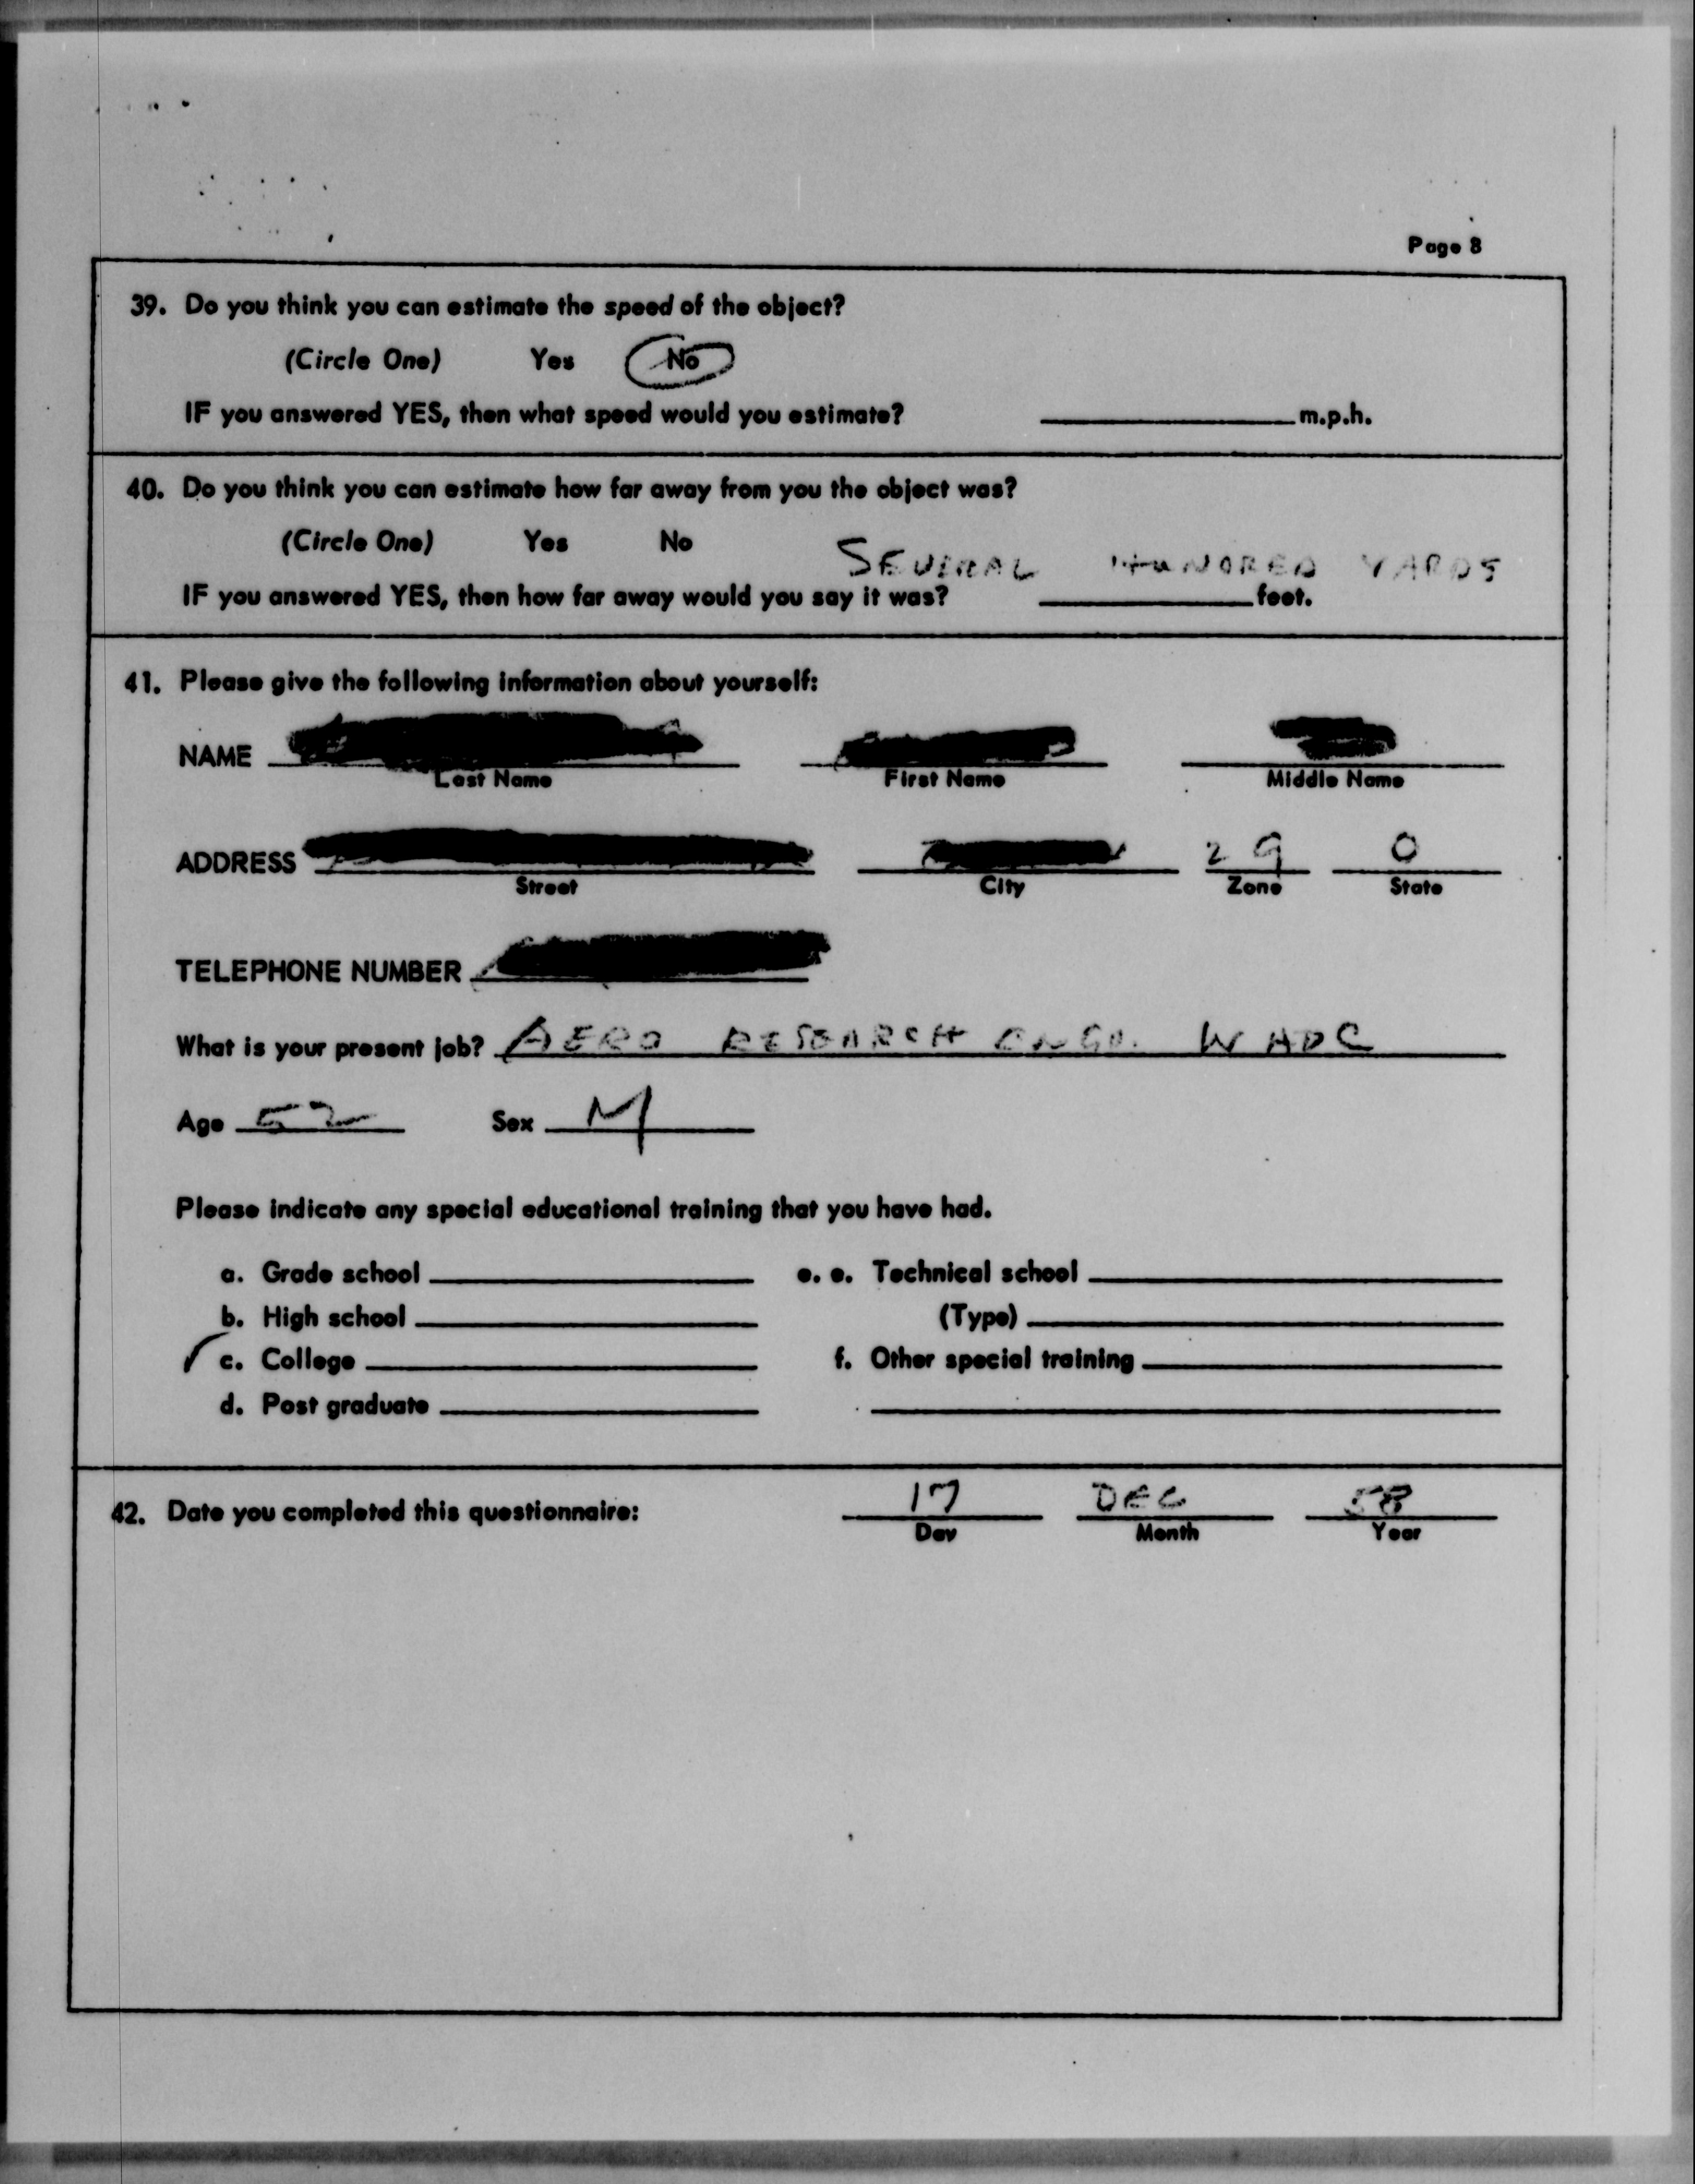 Page 8
39. Do you think you can estimate the speed of the object?
(Circle One) Yes No
IF you answered YES, then what speed would you estimate? m.p.h.
40. Do you think you can estimate how far away from you the object was?
(Circle One) Yes No
SEVERAL HUNDRED YARDS
IF you answered YES, then how far away would you say it was? feet.
41. Please give the following information about yourself:
NAME
Last Name First Name Middle Name
ADDRESS 29 O
Street City Zone State
TELEPHONE NUMBER
What is your present job? AERO RESEARCH ENGR. WADC
Age 52 Sex M
Please indicate any special educational training that you have had.
a. Grade school e. e. Technical school
b. High school (Type)
✓ c. College f. Other special training
d. Post graduate
42. Date you completed this questionnaire: 17 DEC 58
Day Month Year